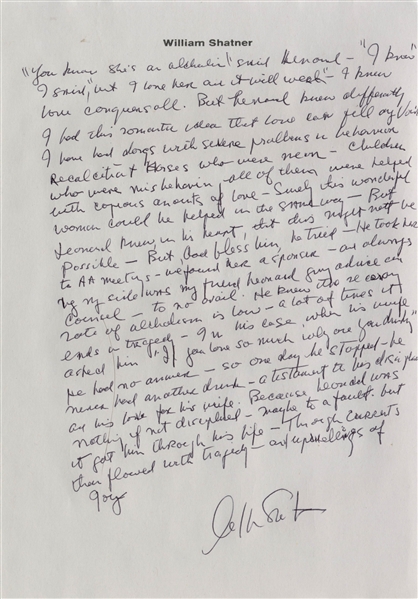 William Shatner
"You know she's an alcoholic" said Leonard - "I know"
I said, "but I love her and it will work" - I knew
love conquers all. But Leonard knew differently
I had this romantic idea that love can fill any void
I have had dogs with severe problems in behavior
Recalcitrant Horses who were mean - Children
who were misbehaving - all of them were helped
with copious amounts of love - Surely this wonderful
woman could be helped in the same way - But
Leonard knew, in his heart, that this might not be
possible - But God bless him, he tried - He took her
to AA meetings - we found her a sponsor - and always
by my side was my friend Leonard giving advice and
council - to no avail. He knew the recovery
rate of alcoholism is low - a lot of times it
ends in tragedy - In his case, when his wife
asked him "If you love so much why are you drinking"
He had no answer - so one day he stopped - he
never had another drink - a testament to his discipline
and his love for his wife. Because Leonard was
nothing if not disciplined - maybe to a fault. but
it got him through his life - Through currents
that flowed with tragedy - and upwellings of
joy